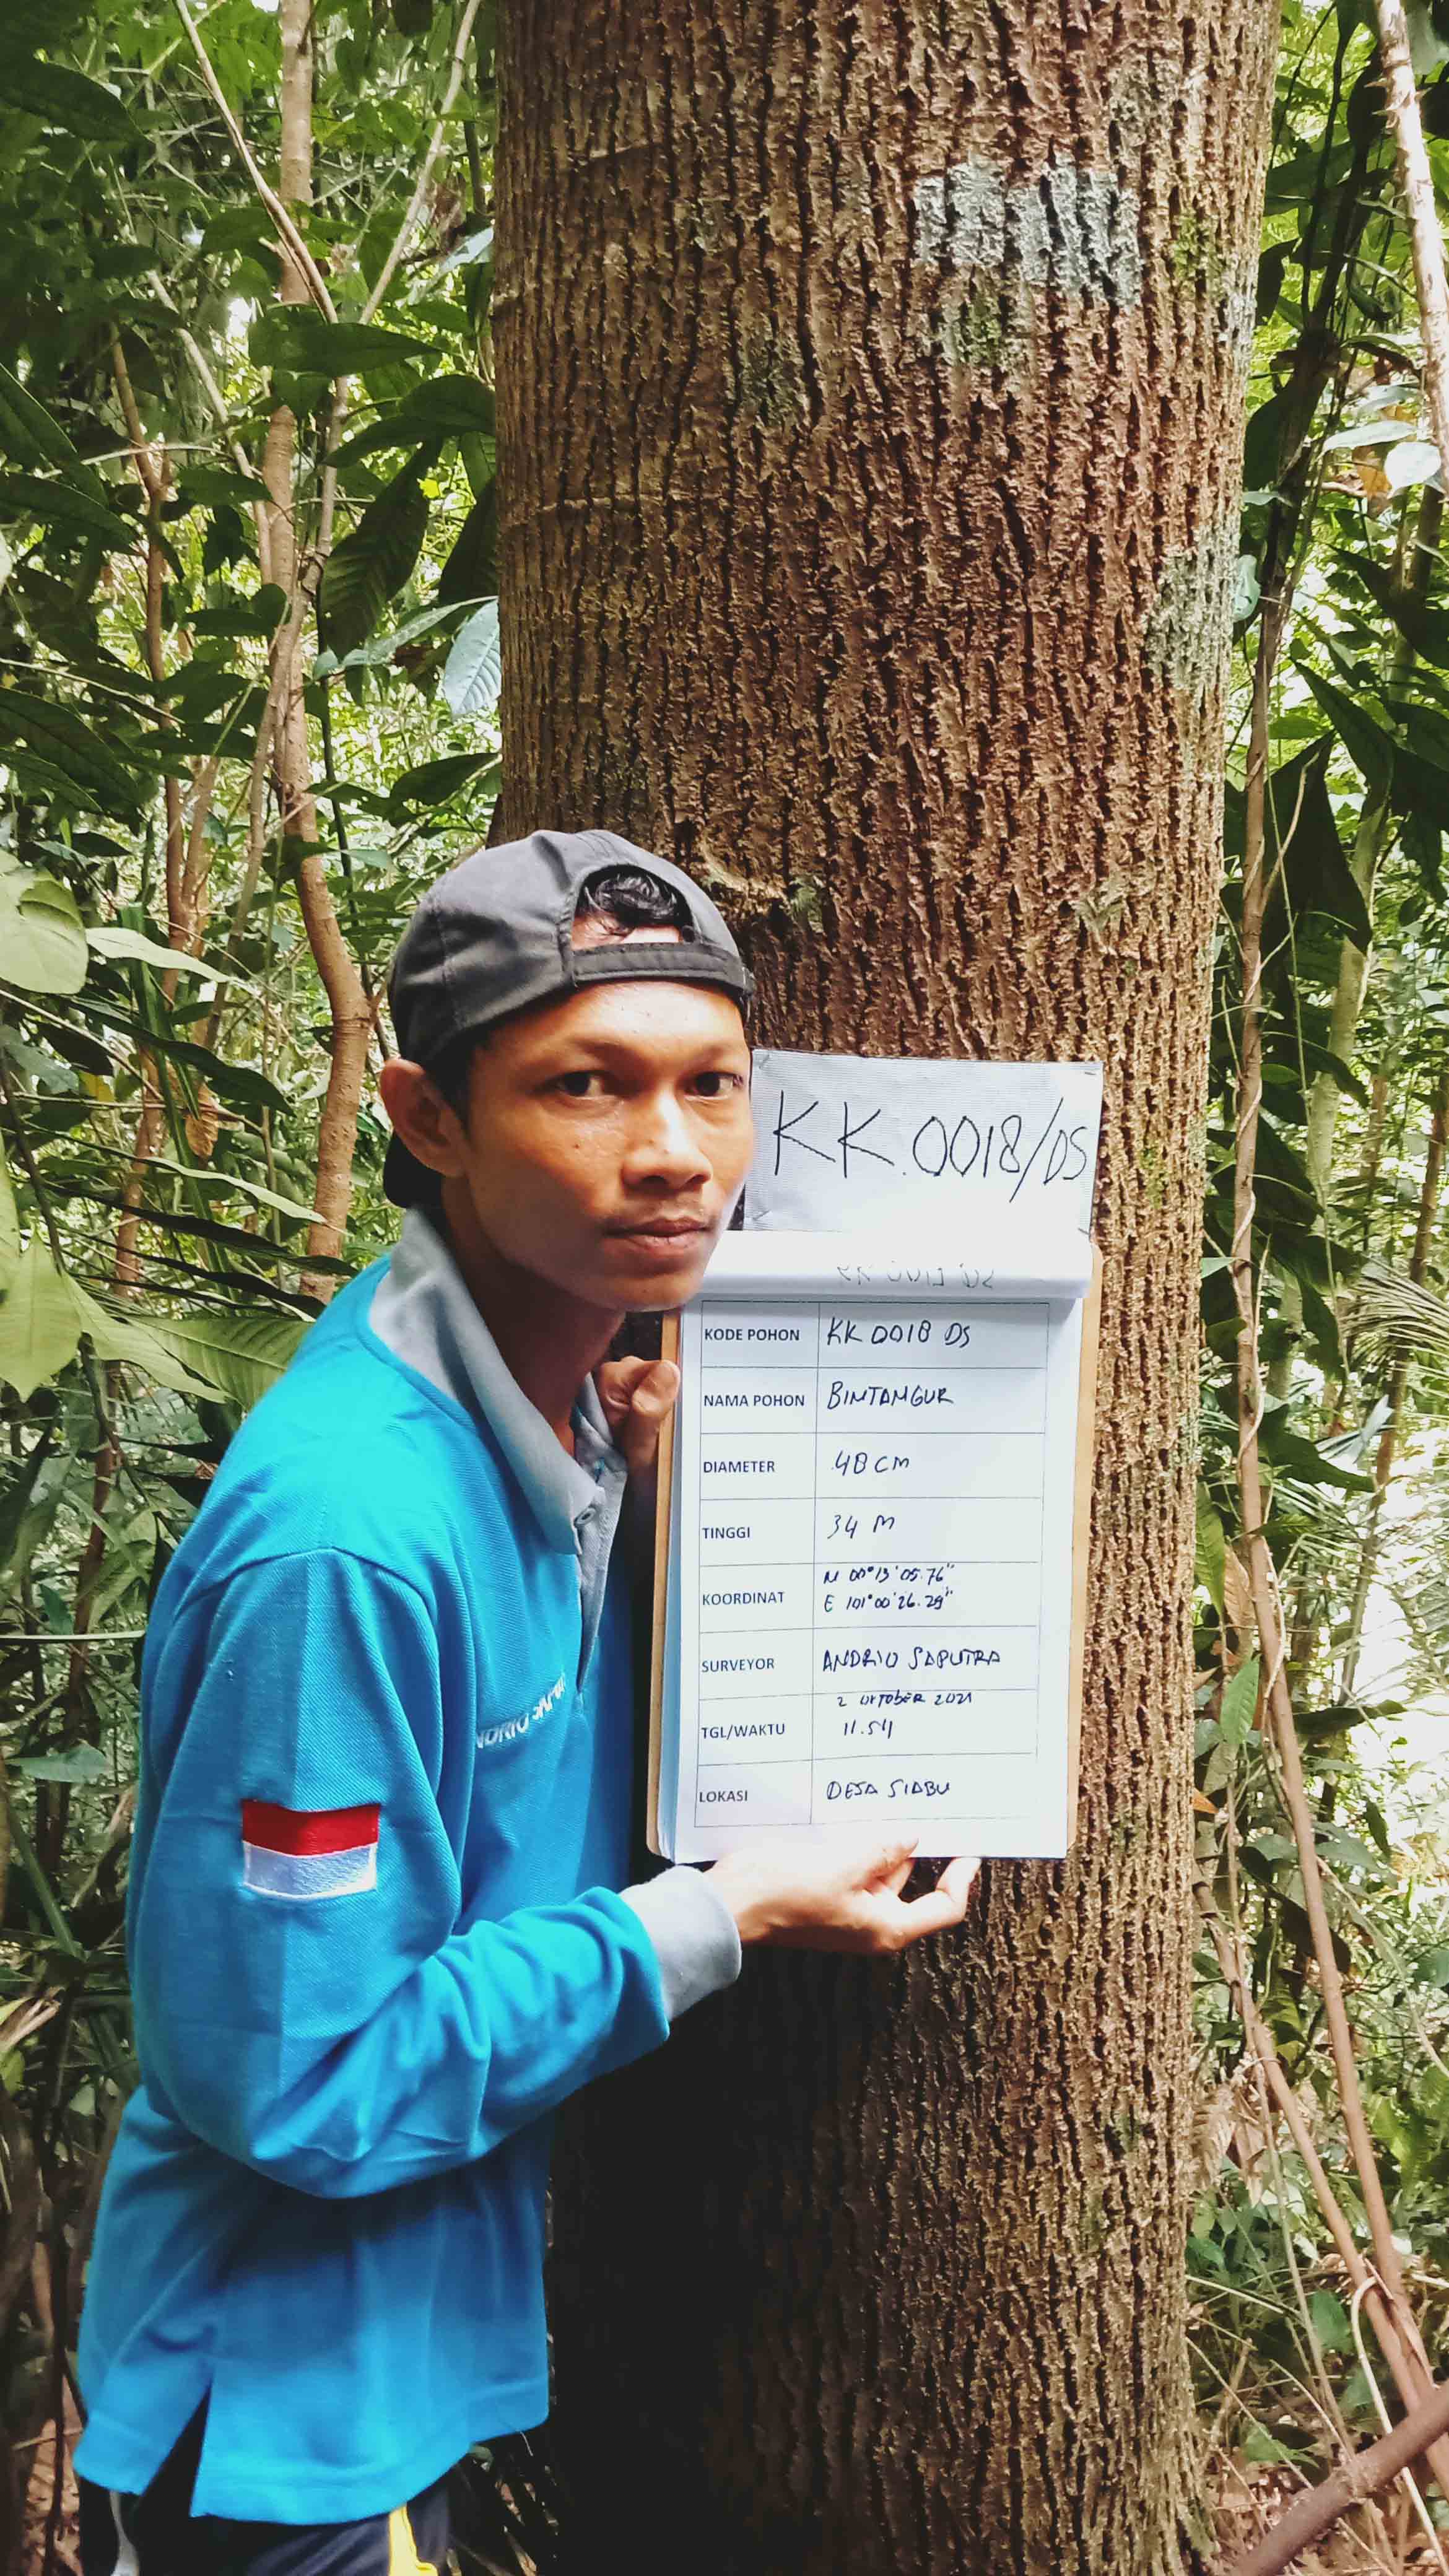 KK.0018/DS
KODE POHON KK 0018 DS
NAMA POHON BINTANGUR
DIAMETER 48 CM
TINGGI 34 M
KOORDINAT N 00°13'05.76"
E 101°00'26.29"
SURVEYOR ANDRIO SAPUTRA
TGL/WAKTU 2 OKTOBER 2021
11.54
LOKASI DESA SIABU